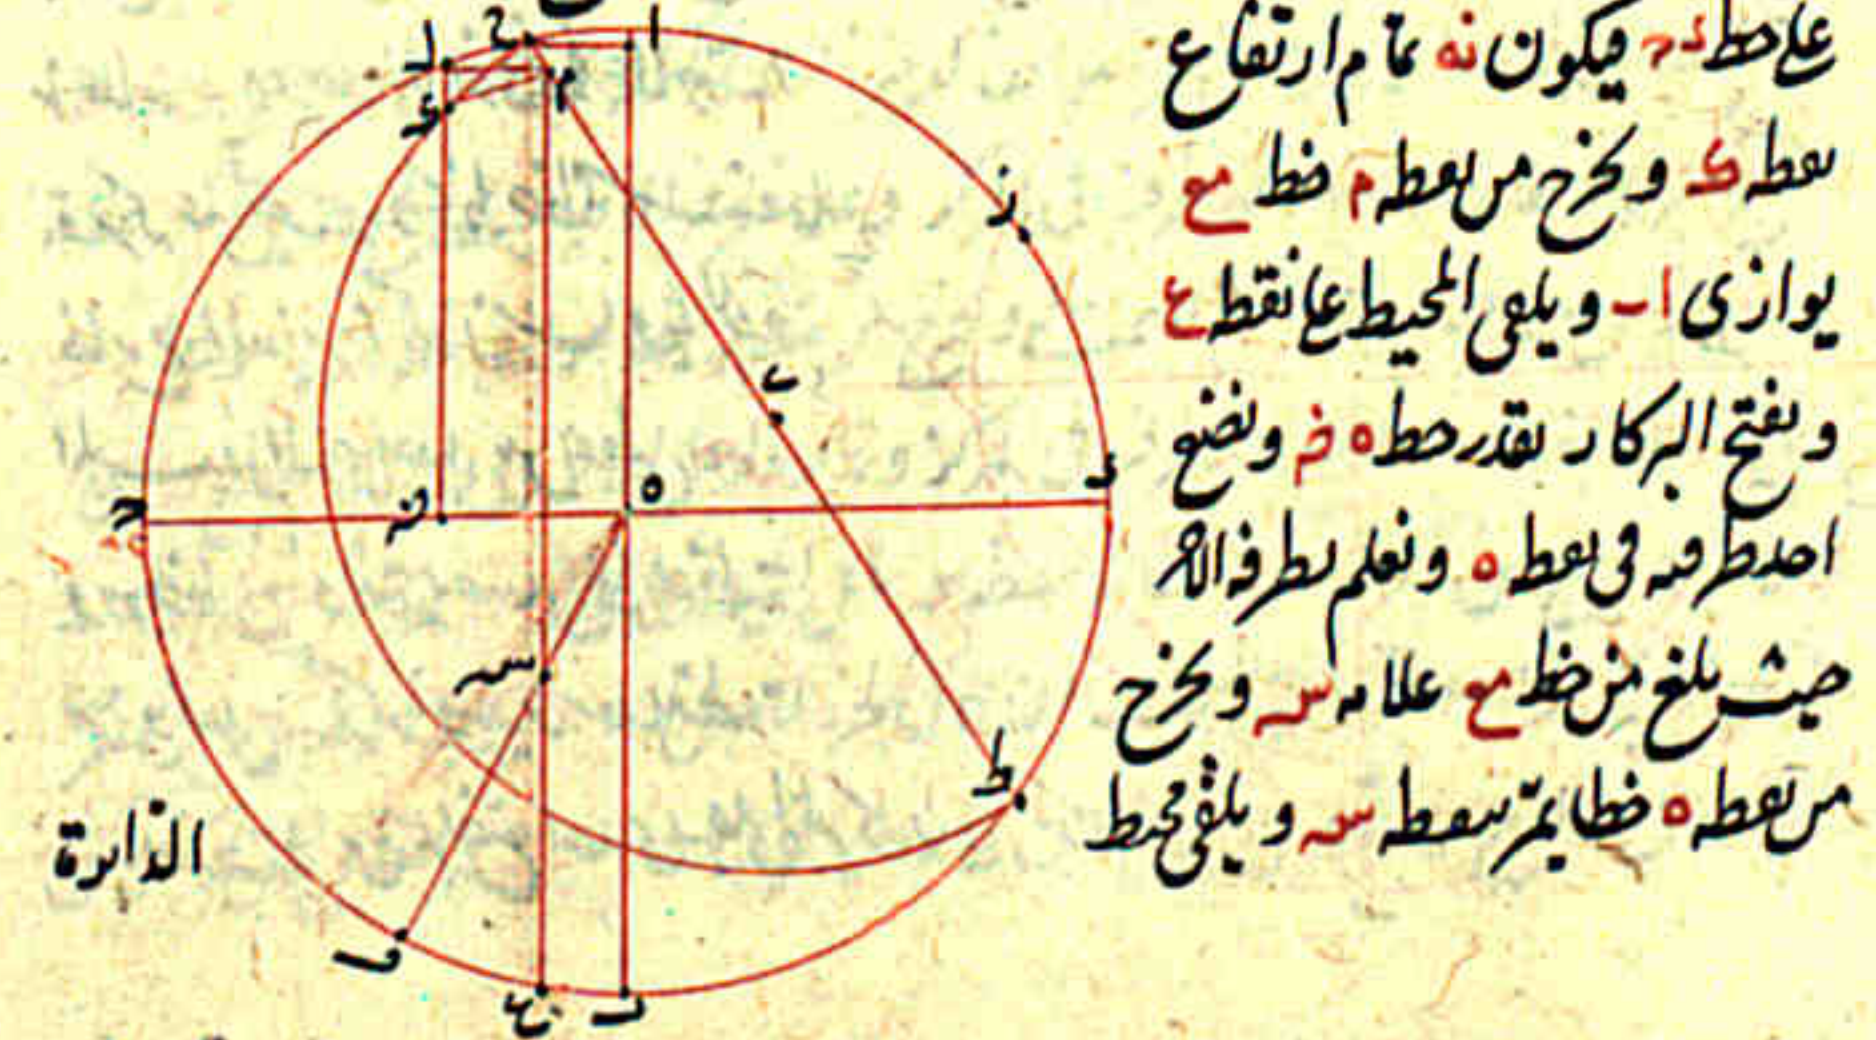 على خط د ح فيكون نه تمام ارتفاع
نقطه ك ونخرج من نقطه م خط مع
يوازى اب ويلقى المحيط على نقطه ع
ونفتح البركار بقدر خط ه ن ونضع
احد طرفيه فى نقطه ه ونعلم بطرفه الاخر
حيث يلغ من خط مع علامه س ونخرج
من نقطه ه خطا يمر بنقطه س ويلقى محيط
الدايرة
ا
ح
ل
م
ك
ز
ى
د
ه
ن
ح
س
ط
ف
ع
ب